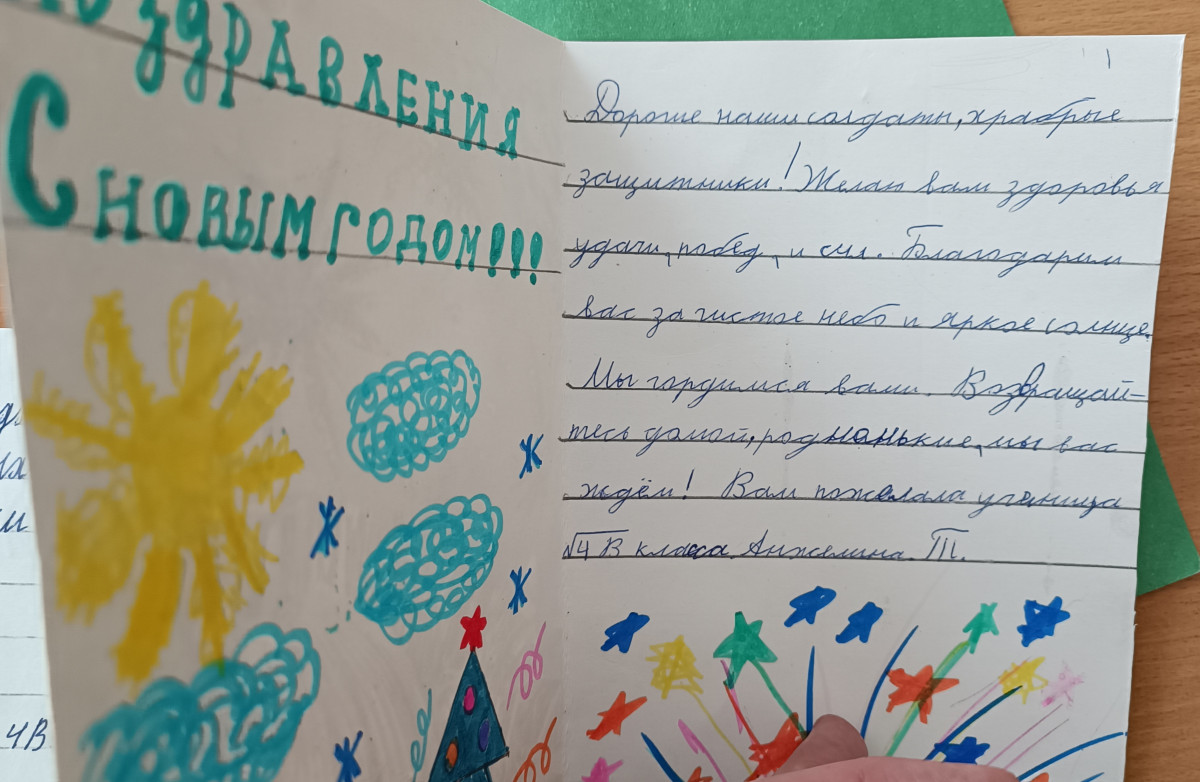 ПОЗДРАВЛЕНИЯ
С НОВЫМ ГОДОМ!!!
Дорогие наши солдаты, храбрые
защитники! Желаю вам здоровья
удачи, побед, и сил. Благодарим
вас за чистое небо и яркое солнце.
Мы гордимся вами. Возвращай-
тесь домой, роднанькие, мы вас
ждём! Вам пожелала ученица
4 В класса Анжелина Т.
4В